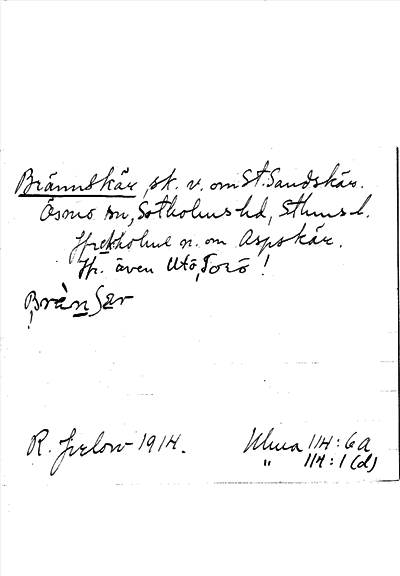 Brännskär, sk. v. om St. Sandskär.
Ösmo sn, Sotholms hd, Sthms l.
n. om Aspskär.
Jfr. även Utö, Torö!
R. Jirlow 1914. Ulma 114:6A
" 114:1(d)